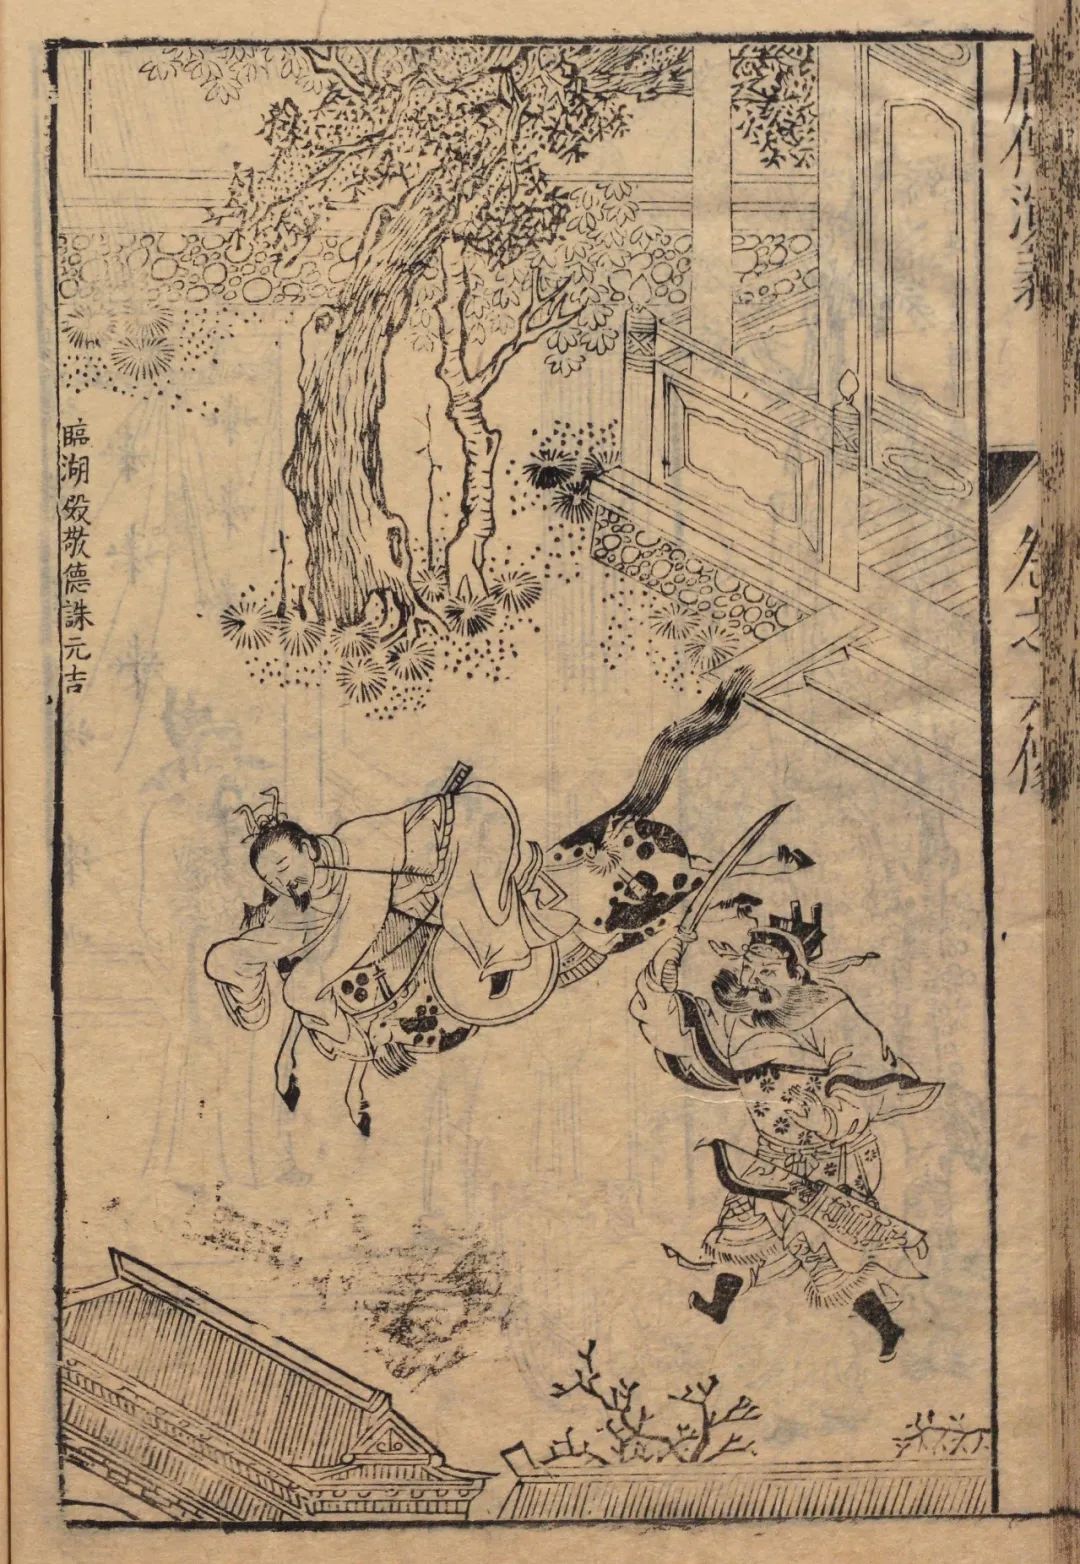 唐傳演義
卷之
臨湖殿敬德誅元吉